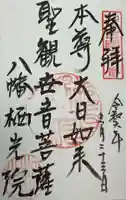 奉拝
令和
二月二十三日
本尊 大日如来
聖観世音菩薩
八幡栖光院